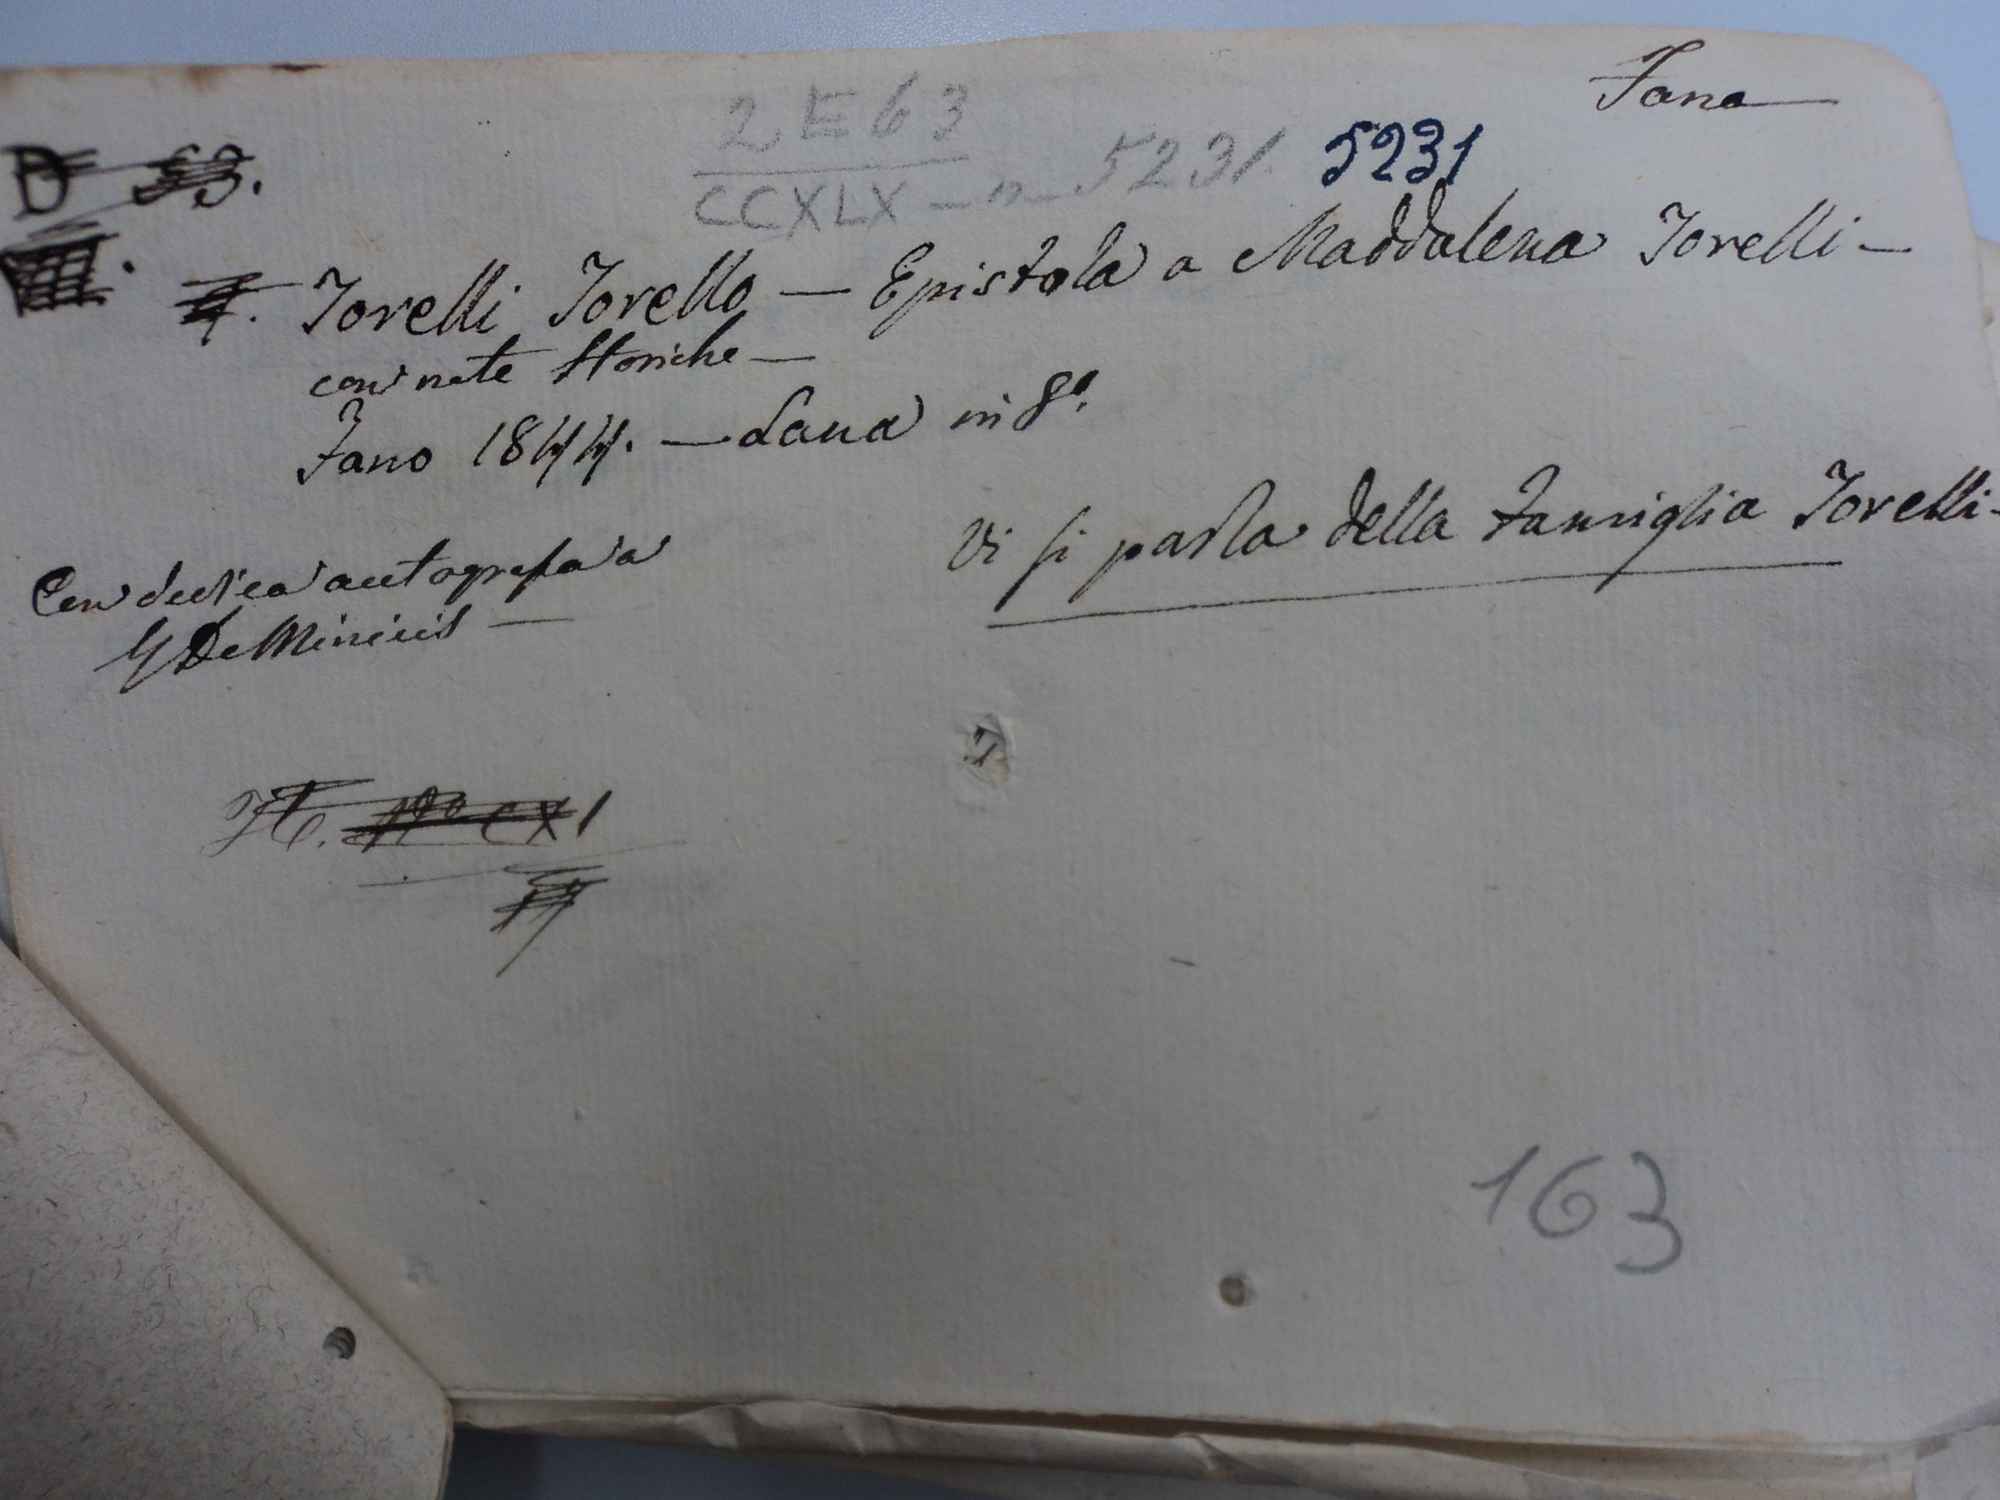 Fano
2 E 63
CCXLX - n 5231. 5231
D 53.
Torelli Torello — Epistola a Maddalena Torelli —
con note storiche —
Fano 1844. — Lana in 8º.
Vi si parla della famiglia Torelli -
Con dedica autografa a
G De Minicis —
Nº CXI
163